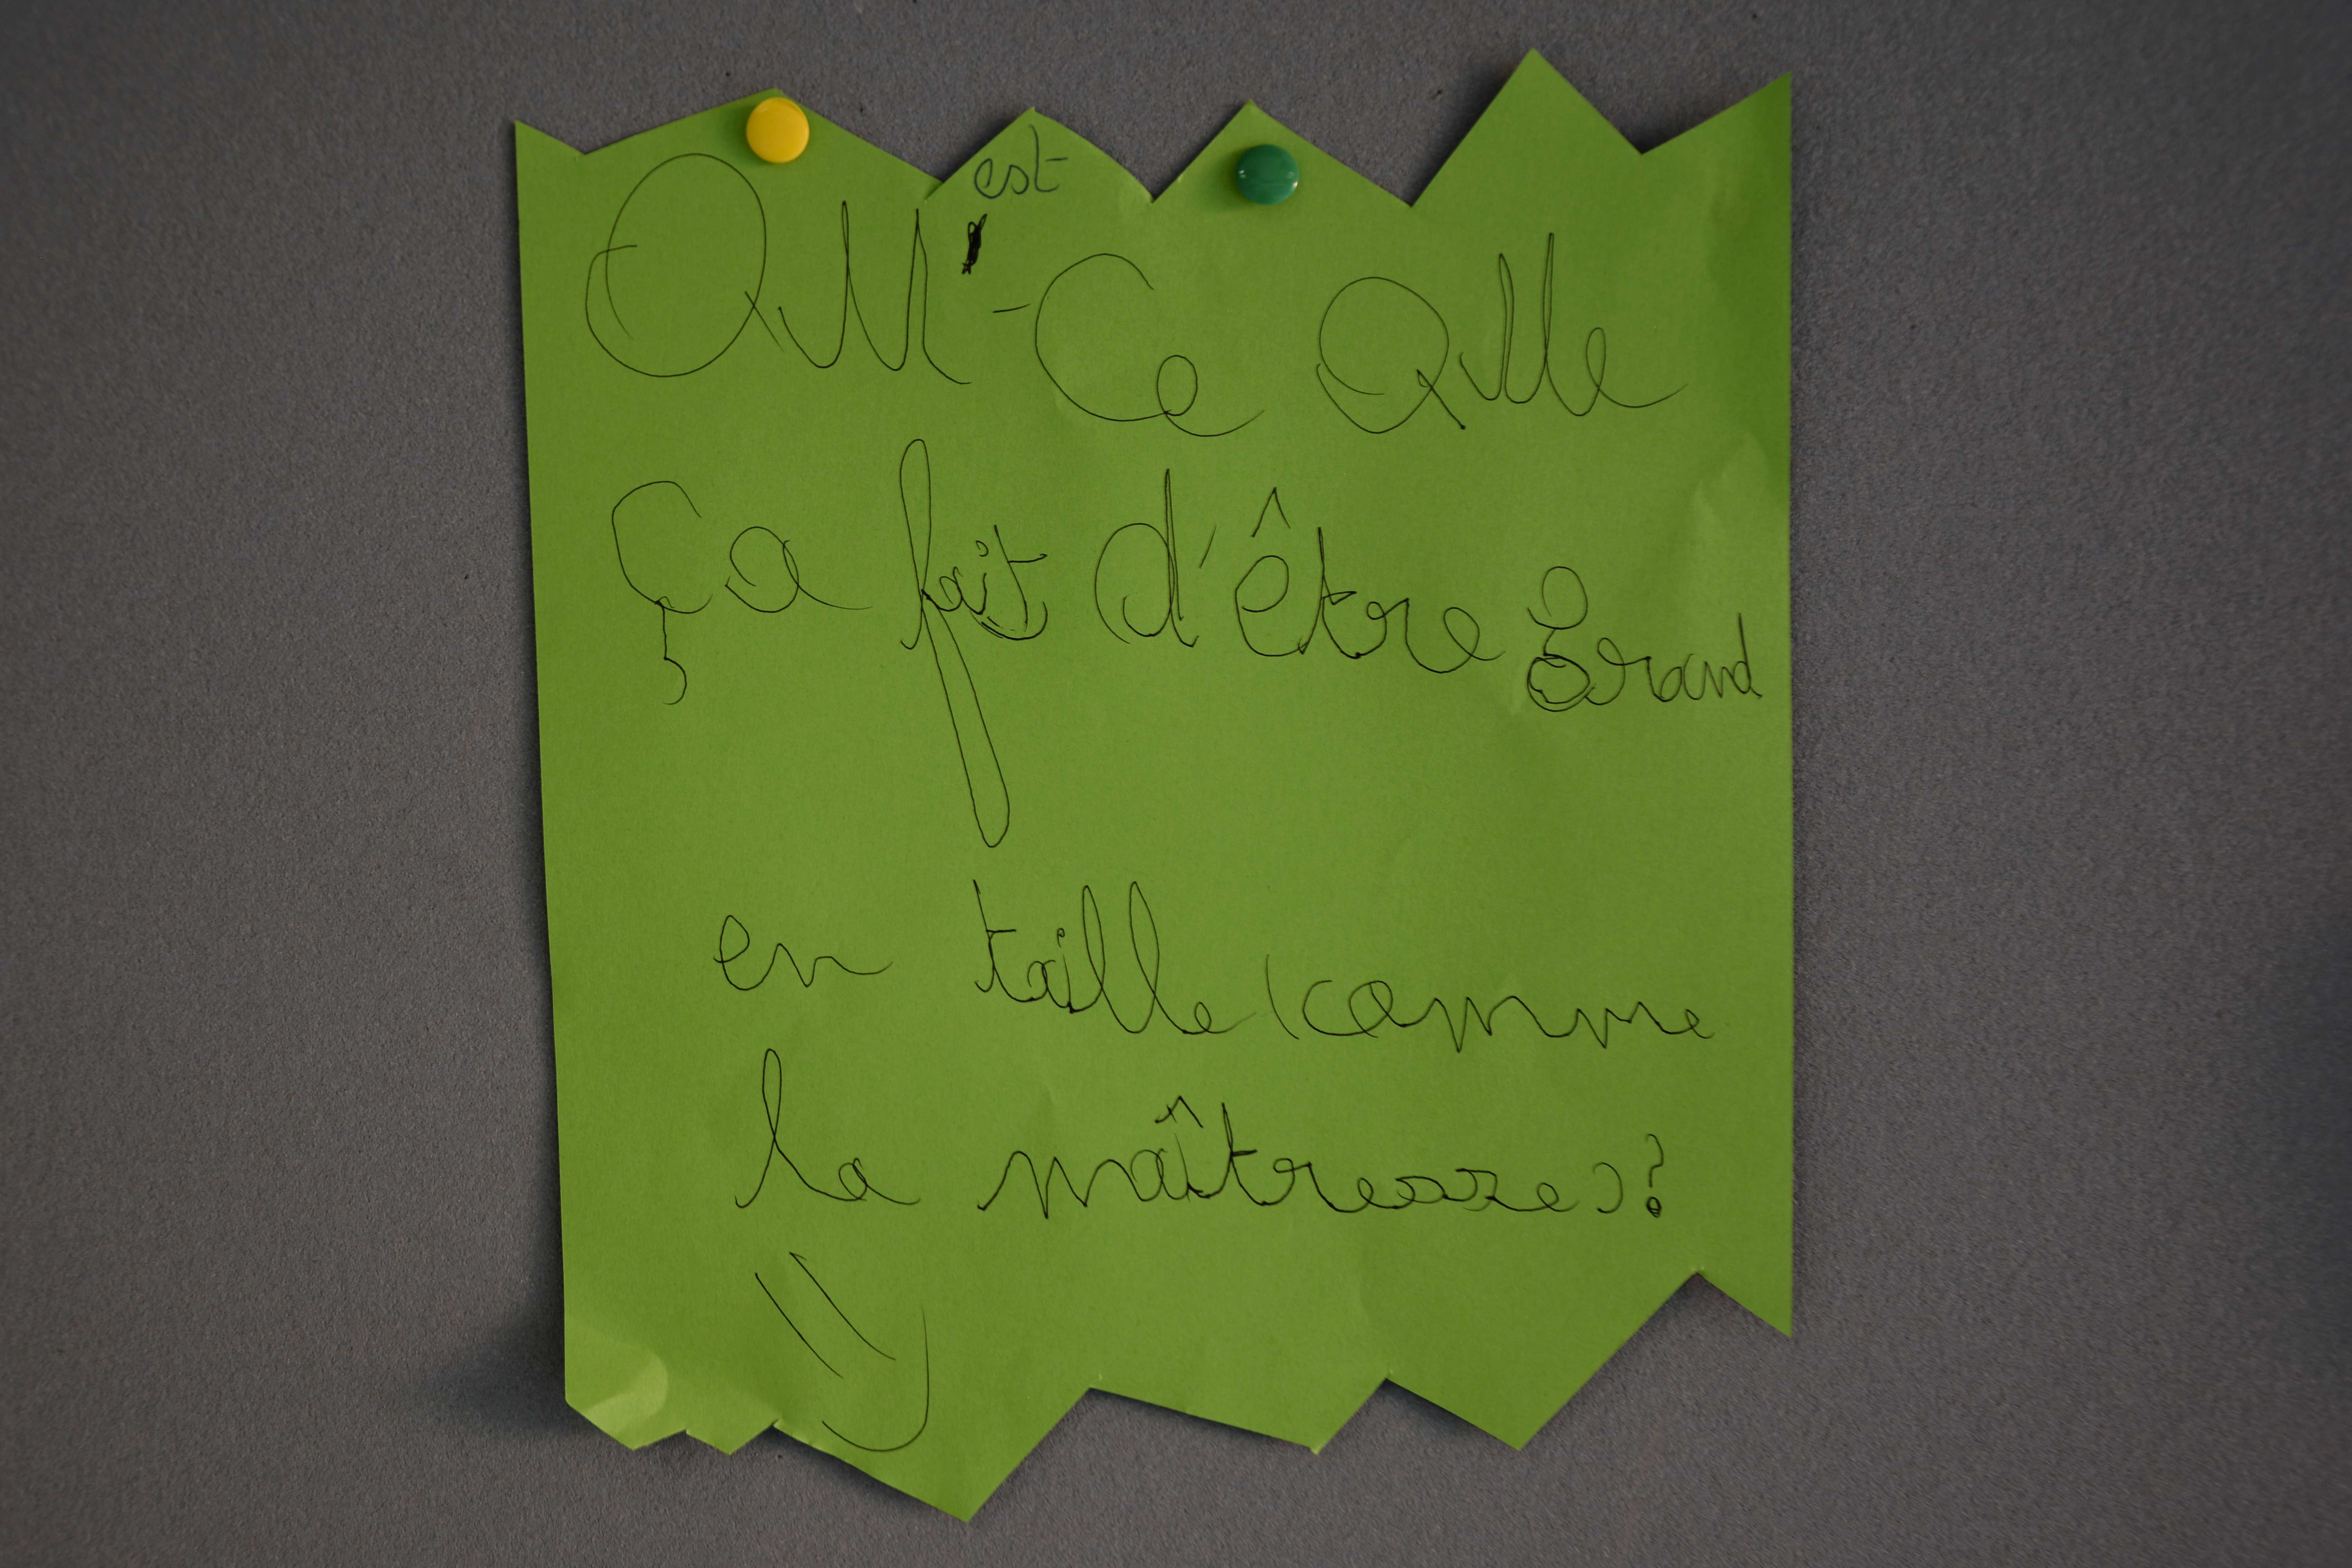 Qu'est-Ce Que
Ça fait d'être grand
en taille (comme
la maîtresse)?